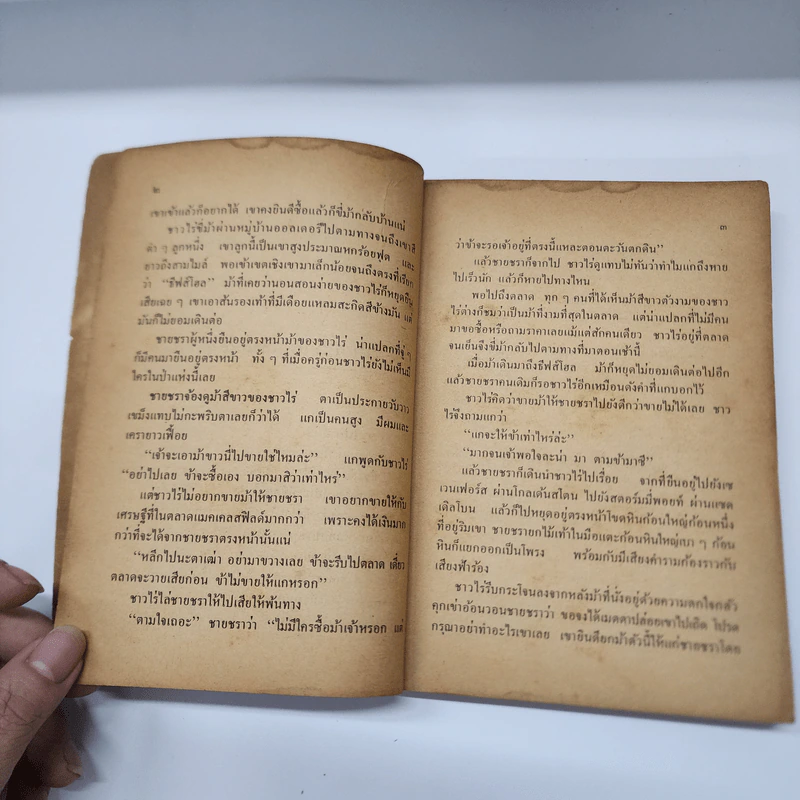 ๒
เขาเข้าแล้วก็อยากได้ เขาคงยินดีซื้อแล้วก็ขี่ม้ากลับบ้านแน่
ชาวไร่ขี่ม้าผ่านหมู่บ้านออลเดอรีไปตามทางจนถึงเขาสี
ดำ ๆ ลูกหนึ่ง เขาลูกนี้เป็นเขาสูงประมาณหกร้อยฟุต และ
ยาวถึงสามไมล์ พอเข้าเขตเชิงเขามาเล็กน้อยจนถึงตรงที่เรียก
ว่า “ธีฟส์โฮล” ม้าที่เคยว่านอนสอนง่ายของชาวไร่ก็หยุดยืน
เสียเฉย ๆ เขาเอาส้นรองเท้าที่มีเดือยแหลมสะกิดสีข้างมัน แต่
มันก็ไม่ยอมเดินต่อ
ชายชราผู้หนึ่งยืนอยู่ตรงหน้าม้าของชาวไร่ น่าแปลกที่จู่ ๆ
ก็มีคนมายืนอยู่ตรงหน้า ทั้ง ๆ ที่เมื่อครู่ก่อนชาวไร่ยังไม่เห็นมี
ใครในป่าแห่งนี้เลย
ชายชราจ้องดูม้าสีขาวของชาวไร่ ตาเป็นประกายวับวาว
เขม็งแทบไม่กะพริบตาเลยก็ว่าได้ แกเป็นคนสูง มีผมและ
เครายาวเฟื้อย
“เจ้าจะเอาม้าขาวนี่ไปขายใช่ไหมล่ะ” แกพูดกับชาวไร่
“อย่าไปเลย ข้าจะซื้อเอง บอกมาสิว่าเท่าไหร่”
แต่ชาวไร่ไม่อยากขายม้าให้ชายชรา เขาอยากขายให้กับ
เศรษฐีที่ในตลาดแมคเคลสฟิลด์มากกว่า เพราะคงได้เงินมาก
กว่าที่จะได้จากชายชราตรงหน้านั้นแน่
“หลีกไปนะตาเฒ่า อย่ามาขวางเลย ข้าจะรีบไปตลาด เดี๋ยว
ตลาดจะวายเสียก่อน ข้าไม่ขายให้แกหรอก”
ชาวไร่ไล่ชายชราให้ไปเสียให้พ้นทาง
“ตามใจเถอะ” ชายชราว่า “ไม่มีใครซื้อม้าเจ้าหรอก แต่
๓
ว่าข้าจะรอเจ้าอยู่ที่ตรงนี้แหละตอนตะวันตกดิน”
แล้วชายชราก็จากไป ชาวไร่ดูแทบไม่ทันว่าทำไมแกถึงหาย
ไปเร็วนัก แล้วก็หายไปทางไหน
พอไปถึงตลาด ทุก ๆ คนที่ได้เห็นม้าสีขาวตัวงามของชาว
ไร่ต่างก็ชมว่าเป็นม้าที่งามที่สุดในตลาด แต่น่าแปลกที่ไม่มีคน
มาขอซื้อหรือถามราคาเลยแม้แต่สักคนเดียว ชาวไร่อยู่ที่ตลาด
จนเย็นจึงขี่ม้ากลับไปตามทางที่มาตอนเช้านี้
เมื่อม้าเดินมาถึงธีฟส์โฮล ม้าก็หยุดไม่ยอมเดินต่อไปอีก
แล้วชายชราคนเดิมก็รอชาวไร่อีกเหมือนดังคำที่แกบอกไว้
ชาวไร่คิดว่าขายม้าให้ชายชราไปยังดีกว่าขายไม่ได้เลย ชาว
ไร่จึงถามแกว่า
“แกจะให้ข้าเท่าไหร่ล่ะ”
“มากจนเจ้าพอใจละน่า มา ตามข้ามาซี”
แล้วชายชราก็เดินนำชาวไร่ไปเรื่อย จากที่ยืนอยู่ไปยังเซ
เวนเฟอร์ส ผ่านโกลเด้นสโตน ไปยังสตอร์มมี่พอยท์ ผ่านแซด
เดิลโบน แล้วก็ไปหยุดอยู่ตรงหน้าโขดหินก้อนใหญ่ก้อนหนึ่ง
ที่อยู่ริมเขา ชายชรายกไม้เท้าในมือแตะก้อนหินใหญ่เบา ๆ ก้อน
หินก็แยกออกเป็นโพรง พร้อมกับมีเสียงคำรามก้องราวกับ
เสียงฟ้าร้อง
ชาวไร่รีบกระโจนลงจากหลังม้าที่นั่งอยู่ด้วยความตกใจกลัว
คุกเข่าอ้อนวอนชายชราว่า ขอจงได้เมตตาปล่อยเขาไปเถิด โปรด
กรุณาอย่าทำอะไรเขาเลย เขายินดียกม้าตัวนี้ให้แก่ชายชราโดย